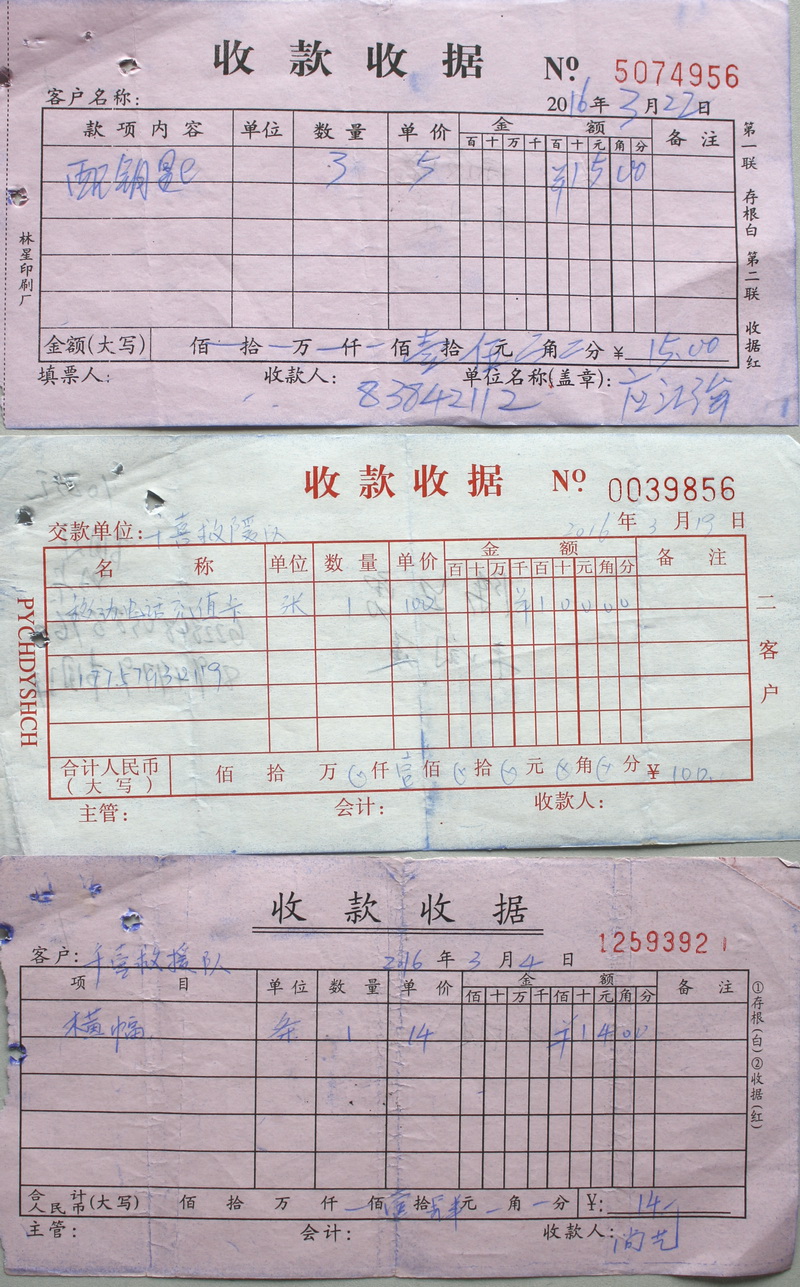 收款收据 Nº 5074956
客户名称: 2016年3月22日
款项内容 单位 数量 单价 金额 备注
百十万千百十元角分
配钥匙 3 5 ¥1500
金额(大写) 佰 拾 万 仟 佰壹拾伍元 角 分 ¥ 15.00
填票人: 收款人: 单位名称(盖章):
83842112
第一联 存根白 第二联 收据红
林星印刷厂
收款收据 Nº 0039856
交款单位:千喜救援队 2016年3月19日
名称 单位 数量 单价 金额 备注
百十万千百十元角分
移动电话充值卡 张 1 100 ¥10000
合计人民币(大写) 佰 拾 万 仟壹佰 拾 元 角 分 ¥ 100.
主管: 会计: 收款人:
二客户
PYCHDYSHCH
收款收据
12593921
客户:千喜救援队 2016年3月4日
项目 单位 数量 单价 金额 备注
佰十万千佰十元角分
横幅 条 1 14 ¥1400
合计人民币(大写) 佰 拾 万 仟 佰壹拾肆元 角 分 ¥: 14
主管: 会计: 收款人:
①存根(白)②收据(红)